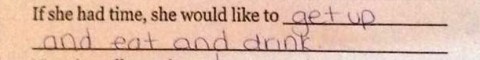 If she had time, she would like to get up
and eat and drink